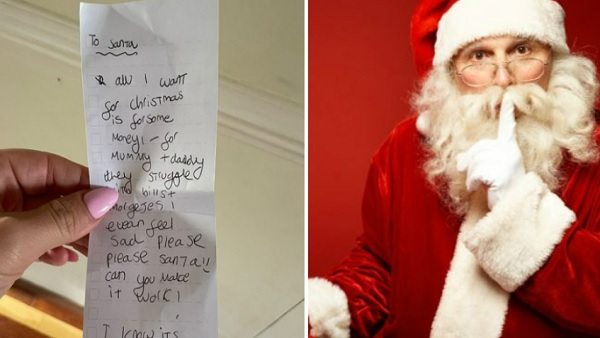 To Santa
all I want
for christmas
is for some
money! - for
mummy + daddy
they struggle
bills +
morgeges I
even feel
sad Please
please santa!!
can you make
it work!
I know its